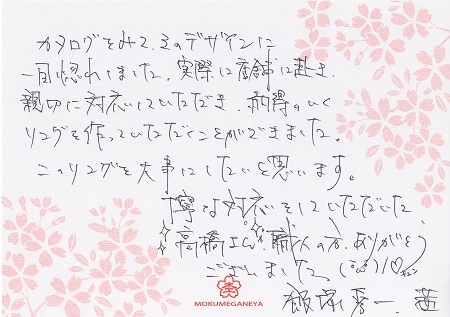 カタログをみて、そのデザインに
一目惚れしました。実際に店舗に赴き、
親切に対応していただき、納得のいく
リングを作っていただくことができました。
このリングを大事にしたいと思います。
丁寧な対応をしていただいた
高橋さん、職人の方、ありがとう
ございました。
MOKUMEGANEYA
飯塚 一 茜